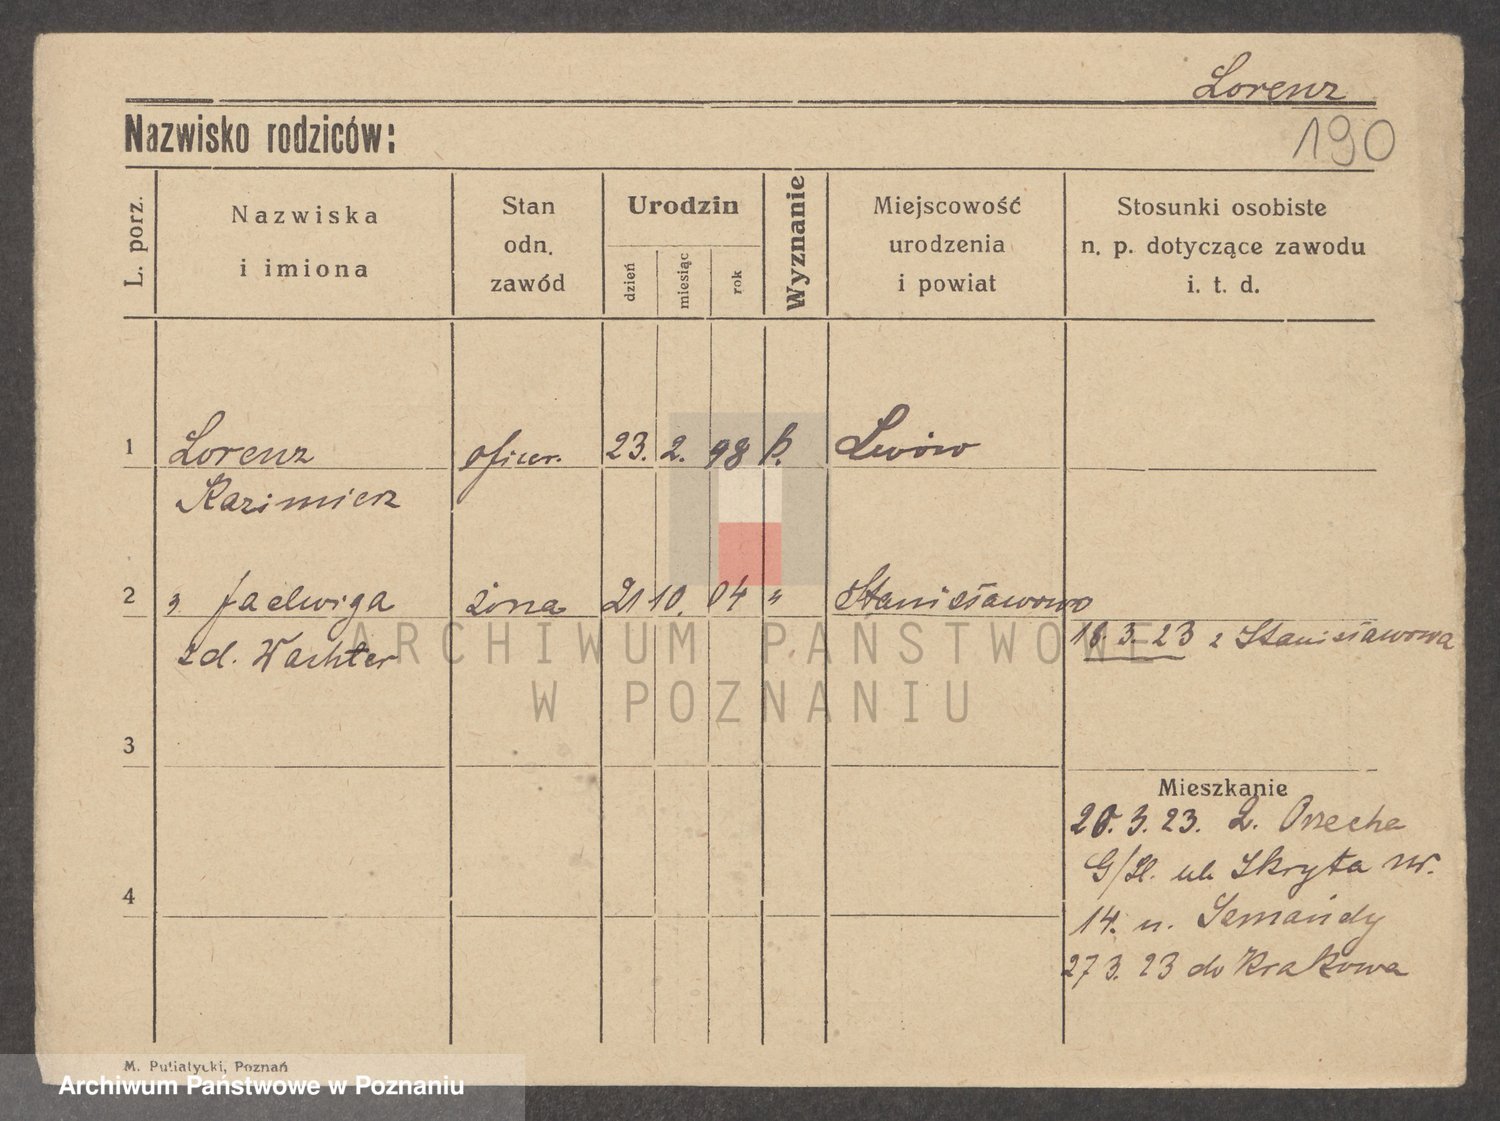 Lorenz
190
Nazwisko rodziców:
L. porz.
Nazwiska
i imiona
Stan
odn.
zawód
Urodzin
dzień
miesiąc
rok
Wyznanie
Miejscowość
urodzenia
i powiat
Stosunki osobiste
n. p. dotyczące zawodu
i. t. d.
1 Lorenz oficer. 23. 2. 98 k. Lwów
Kazimierz
2 ż. Jadwiga żona 21 10. 04 " Stanisławowo
zd. Wachter
18. 3. 23 z Stanisławowa
3
Mieszkanie
20. 3. 23. L. Orzecha
ul. Skryta nr.
14. u.
27 3. 23 do Krakowa
4
M. Putiatycki, Poznań
ARCHIWUM PAŃSTWOWE
W POZNANIU
Archiwum Państwowe w Poznaniu